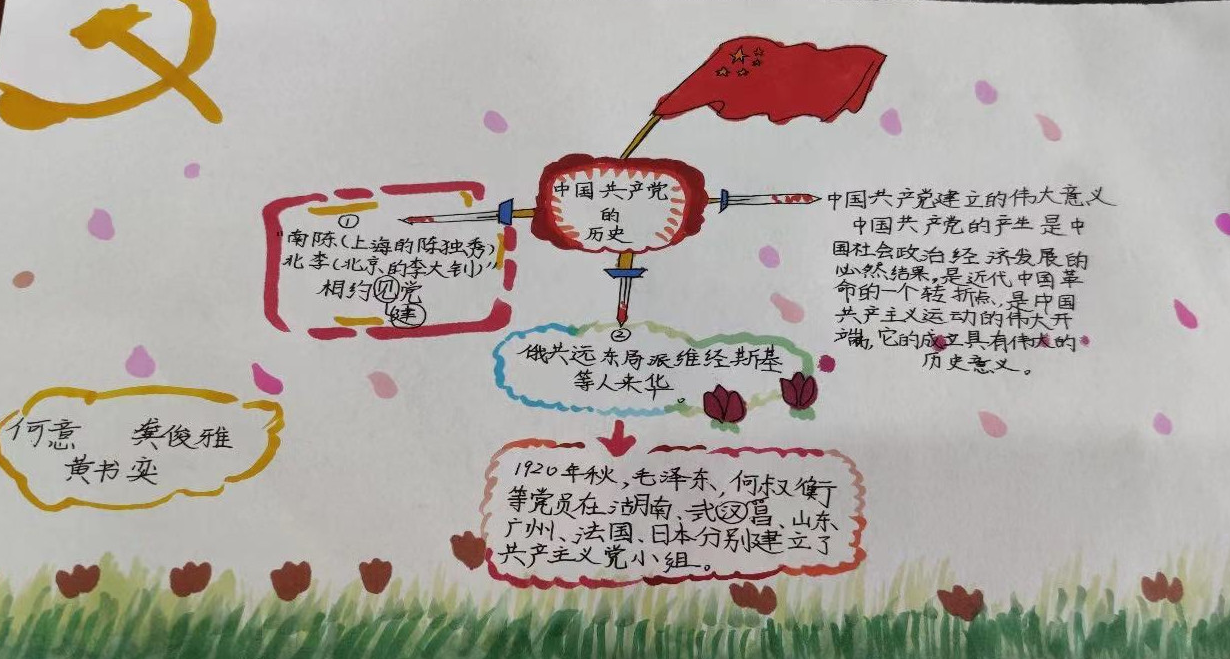 中国共产党
的
历史
①
"南陈(上海的陈独秀)
北李(北京的李大钊)"
相约见党
建
②
俄共远东局派维经斯基
等人来华。
1920年秋,毛泽东,何叔衡
等党员在湖南、武汉昌、山东
广州、法国、日本分别建立了
共产主义党小组。
中国共产党建立的伟大意义
中国共产党的产生是中
国社会政治经济发展的
必然结果,是近代中国革
命的一个转折点,是中国
共产主义运动的伟大开
端,它的成立具有伟大的
历史意义。
何意 龚俊雅
黄书奕